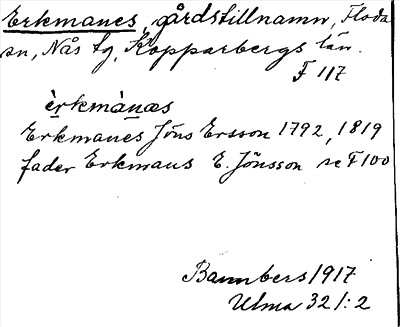 Erkmanes, gårdstillnamn, Floda
sn, Nås tg, Kopparbergs län.
F 117
èrkmànæs
Erkmanes Jöns Ersson 1792, 1819
fader Erkmans E. Jönsson se F100
Bannbers 1917
Ulma 321:2